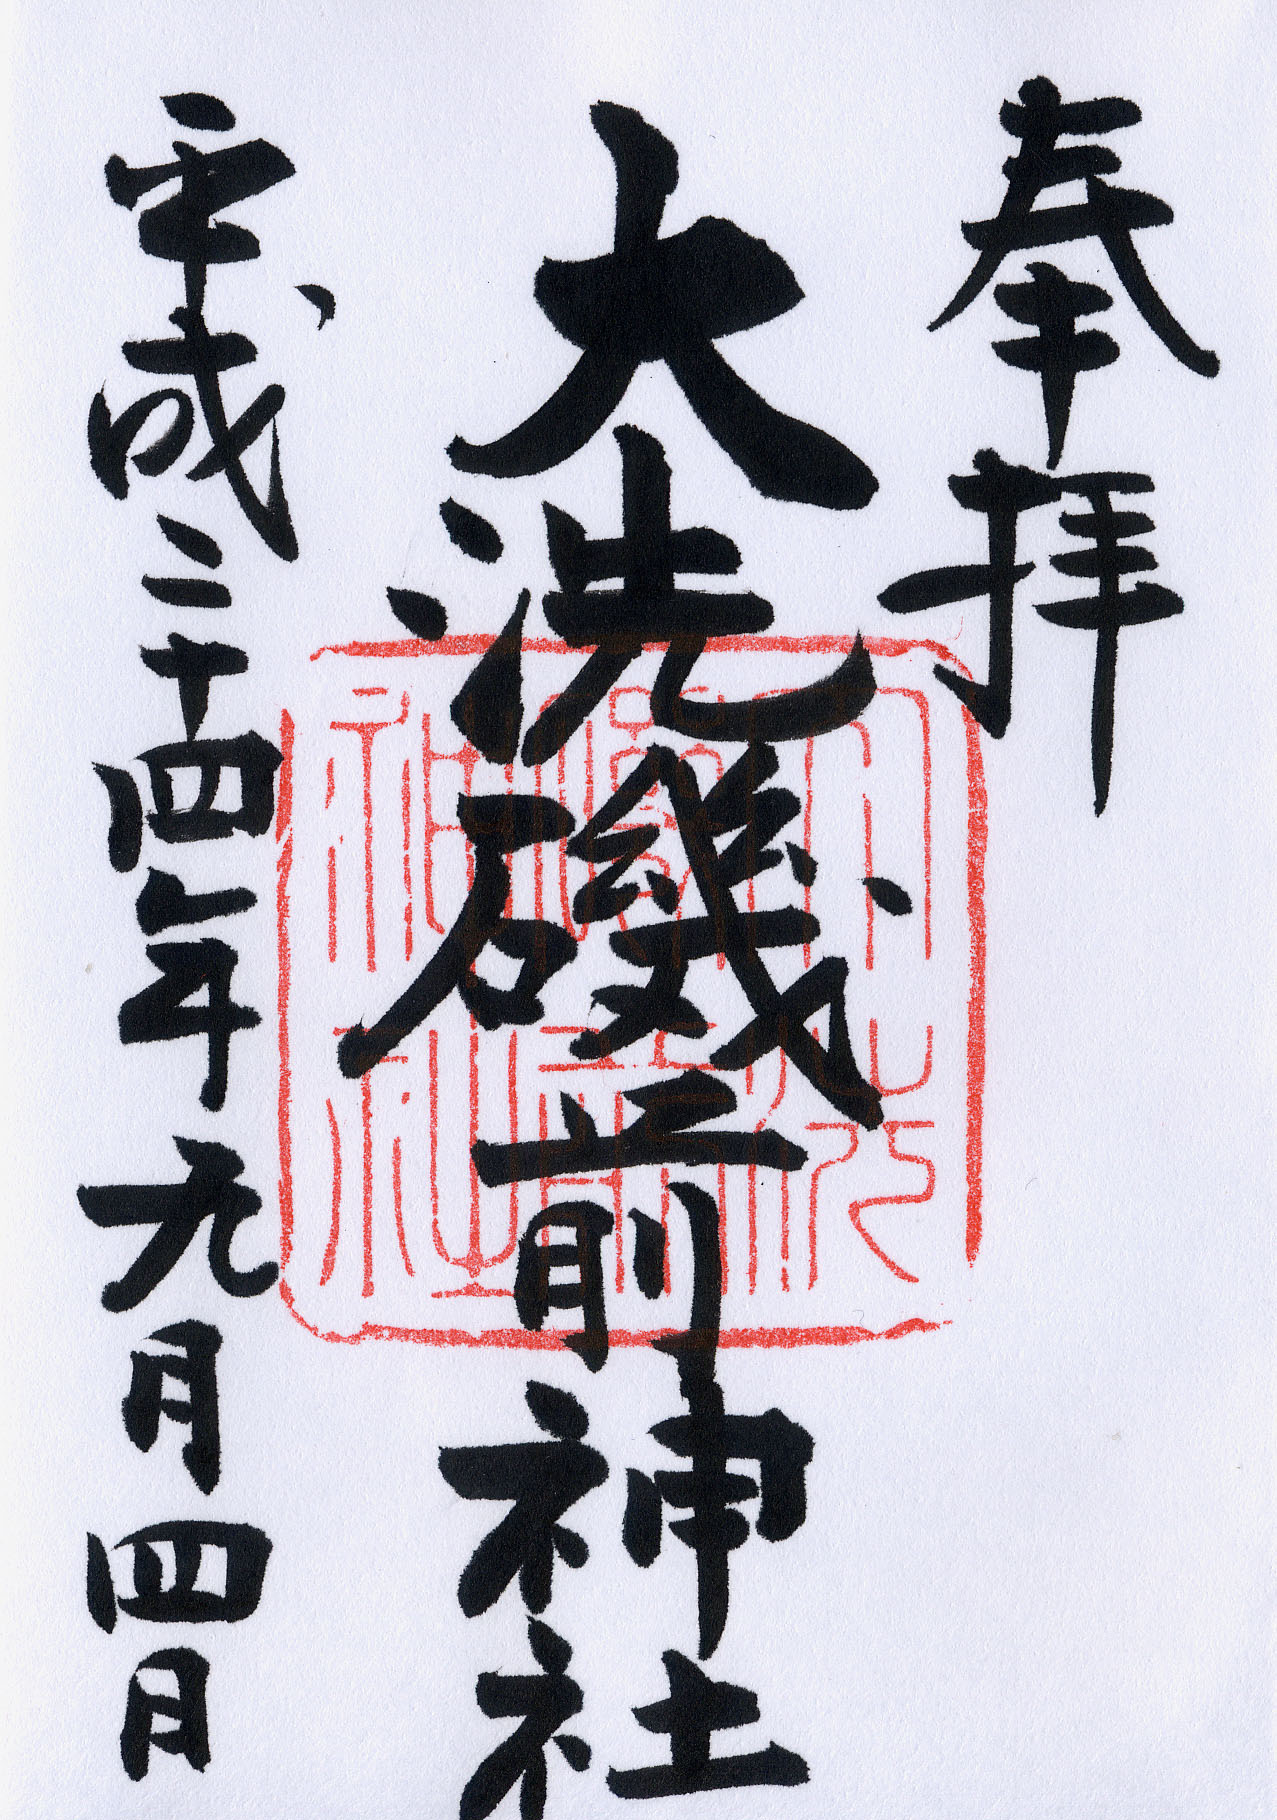 奉拝
大洗磯前神社
平成二十四年九月四日
大洗
磯前
神社